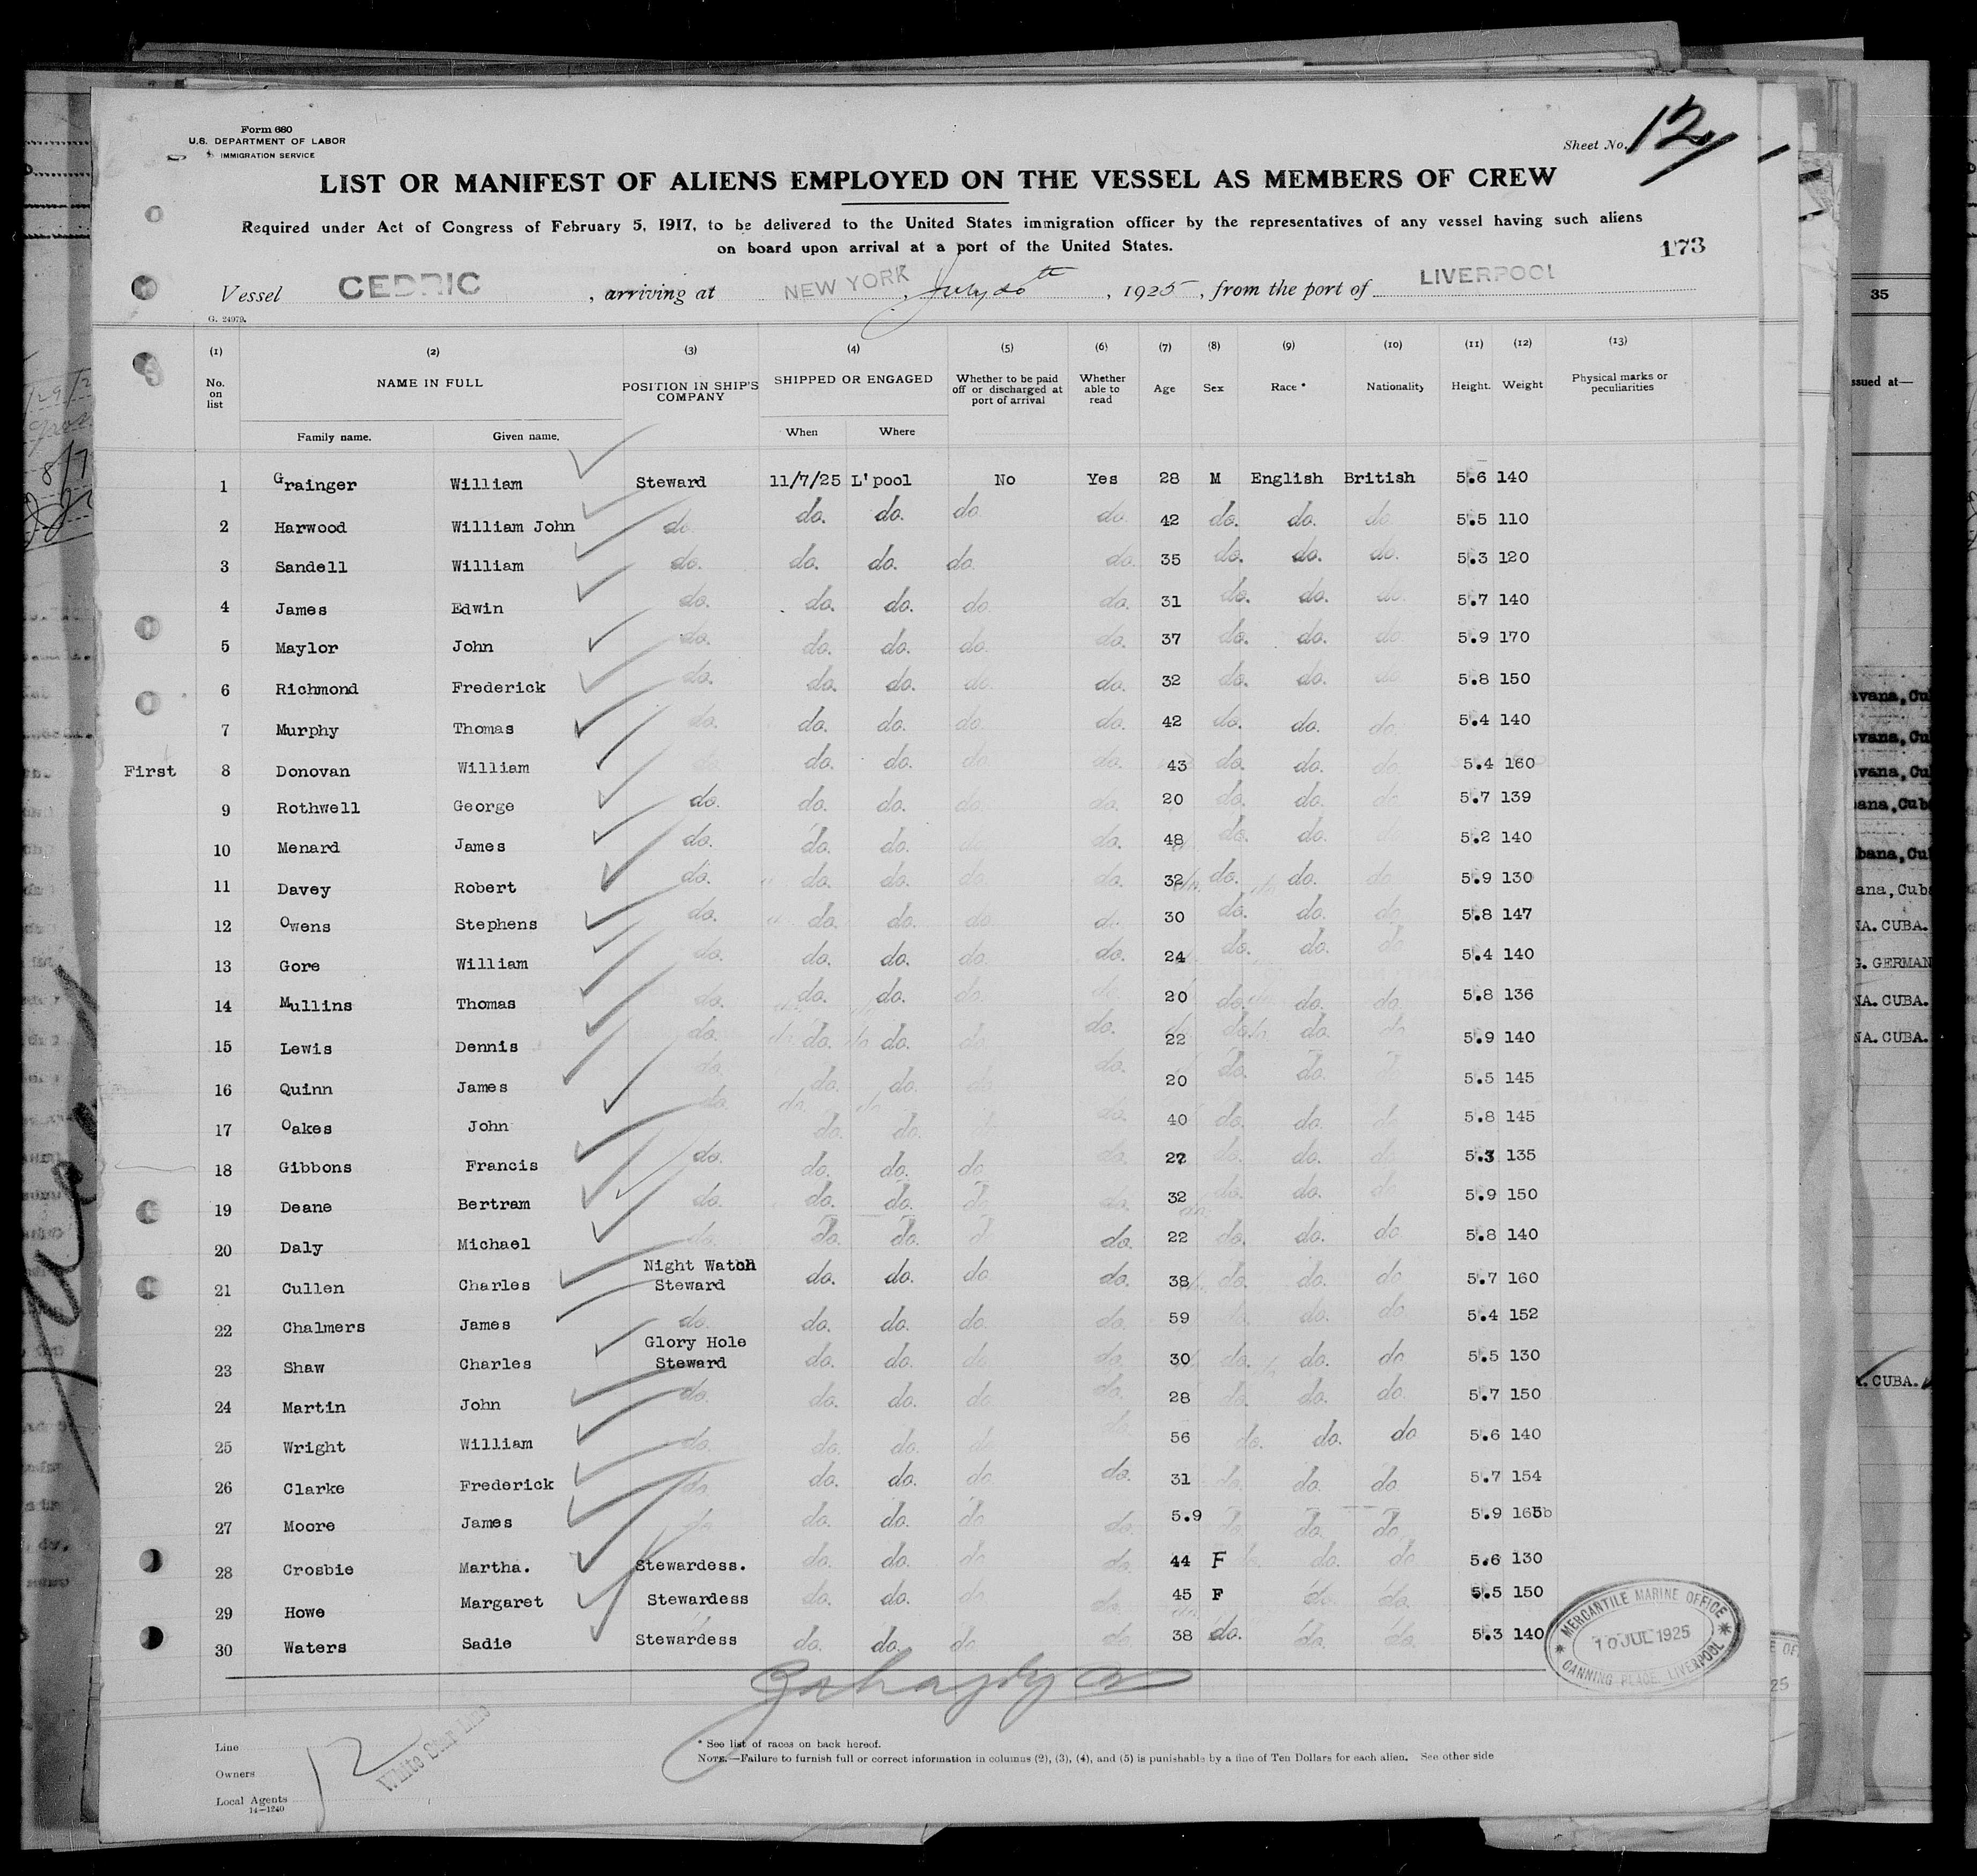 Form 680
U.S. DEPARTMENT OF LABOR
IMMIGRATION SERVICE
Sheet No. 12
LIST OR MANIFEST OF ALIENS EMPLOYED ON THE VESSEL AS MEMBERS OF CREW
Required under Act of Congress of February 5, 1917, to be delivered to the United States immigration officer by the representatives of any vessel having such aliens
on board upon arrival at a port of the United States.
173
Vessel CEDRIC , arriving at NEW YORK , July 20th , 1925 , from the port of LIVERPOOL
G. 24979.
(1) (2) (3) (4) (5) (6) (7) (8) (9) (10) (11) (12) (13)
No. on list NAME IN FULL POSITION IN SHIP'S COMPANY SHIPPED OR ENGAGED Whether to be paid off or discharged at port of arrival Whether able to read Age Sex Race * Nationality Height. Weight Physical marks or peculiarities
Family name. Given name. When Where
1 Grainger William Steward 11/7/25 L'pool No Yes 28 M English British 5.6 140
2 Harwood William John do. do. do. do. do. 42 do. do. do. 5.5 110
3 Sandell William do. do. do. do. do. 35 do. do. do. 5.3 120
4 James Edwin do. do. do. do. do. 31 do. do. do. 5.7 140
5 Maylor John do. do. do. do. do. 37 do. do. do. 5.9 170
6 Richmond Frederick do. do. do. do. do. 32 do. do. do. 5.8 150
7 Murphy Thomas do. do. do. do. do. 42 do. do. do. 5.4 140
First 8 Donovan William do. do. do. do. do. 43 do. do. do. 5.4 160
9 Rothwell George do. do. do. do. do. 20 do. do. do. 5.7 139
10 Menard James do. do. do. do. do. 48 do. do. do. 5.2 140
11 Davey Robert do. do. do. do. do. 32 do. do. do. 5.9 130
12 Owens Stephens do. do. do. do. do. 30 do. do. do. 5.8 147
13 Gore William do. do. do. do. do. 24 do. do. do. 5.4 140
14 Mullins Thomas do. do. do. do. do. 20 do. do. do. 5.8 136
15 Lewis Dennis do. do. do. do. do. 22 do. do. do. 5.9 140
16 Quinn James do. do. do. do. do. 20 do. do. do. 5.5 145
17 Oakes John do. do. do. do. do. 40 do. do. do. 5.8 145
18 Gibbons Francis do. do. do. do. do. 22 do. do. do. 5.3 135
19 Deane Bertram do. do. do. do. do. 32 do. do. do. 5.9 150
20 Daly Michael do. do. do. do. do. 22 do. do. do. 5.8 140
21 Cullen Charles Night Watch Steward do. do. do. do. 38 do. do. do. 5.7 160
22 Chalmers James do. do. do. do. do. 59 do. do. do. 5.4 152
23 Shaw Charles Glory Hole Steward do. do. do. do. 30 do. do. do. 5.5 130
24 Martin John do. do. do. do. do. 28 do. do. do. 5.7 150
25 Wright William do. do. do. do. do. 56 do. do. do 5.6 140
26 Clarke Frederick do. do. do. do. do. 31 do. do. do. 5.7 154
27 Moore James do. do. do. do. do. 5.9 do. do. do. 5.9 165b
28 Crosbie Martha. Stewardess. do. do. do. do. 44 F do. do. 5.6 130
29 Howe Margaret Stewardess do. do. do. do. 45 F do. do. 5.5 150
30 Waters Sadie Stewardess do. do. do. do. 38 do. do. do. 5.3 140
MERCANTILE MARINE OFFICE
10 JUL 1925
CANNING PLACE, LIVERPOOL
Line
Owners
Local Agents
14—1240
12
White Star Line
* See list of races on back hereof.
NOTE.—Failure to furnish full or correct information in columns (2), (3), (4), and (5) is punishable by a fine of Ten Dollars for each alien. See other side
35
ssued at—
avana, Cu
vana, Cu
vana, Cu
ana, Cub
bana, Cu
ana, Cub
NA. CUBA.
G. GERMAN
NA. CUBA.
NA. CUBA.
A. CUBA.